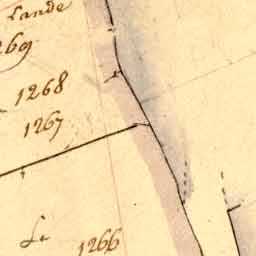 Lande
269
1268
1267
Le
1266